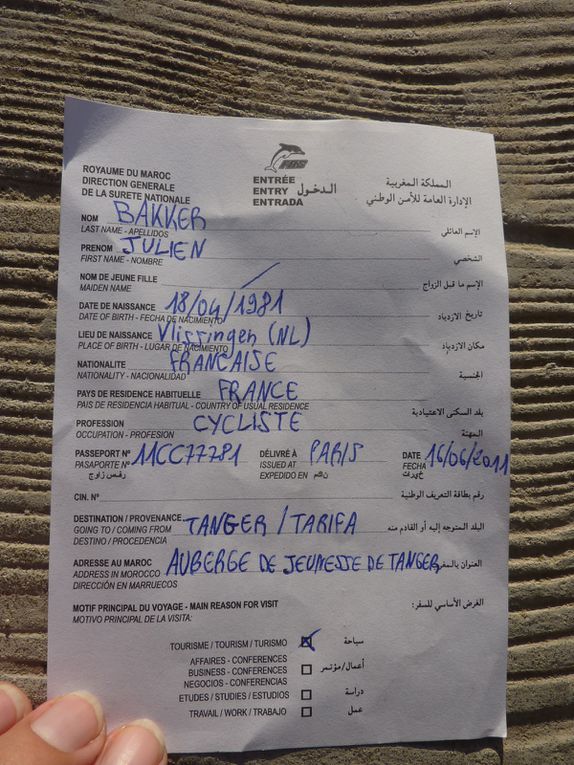 FRS
ROYAUME DU MAROC
DIRECTION GENERALE
DE LA SURETE NATIONALE
ENTRÉE
ENTRY الدخول
ENTRADA
المملكة المغربية
الإدارة العامة للأمن الوطني
NOM BAKKER الإسم العائلي
LAST NAME - APELLIDOS
PRENOM JULIEN الشخصي
FIRST NAME - NOMBRE
NOM DE JEUNE FILLE الإسم ما قبل الزواج
MAIDEN NAME
DATE DE NAISSANCE 18/04/1981 تاريخ الازدياد
DATE OF BIRTH - FECHA DE NACIMIENTO
LIEU DE NAISSANCE Vlissingen (NL) مكان الازدياد
PLACE OF BIRTH - LUGAR DE NACIMIENTO
NATIONALITE FRANCAISE الجنسية
NATIONALITY - NACIONALIDAD
PAYS DE RESIDENCE HABITUELLE FRANCE بلد السكنى الاعتيادية
PAIS DE RESIDENCIA HABITUAL - COUNTRY OF USUAL RESIDENCE
PROFESSION CYCLISTE المهنة
OCCUPATION - PROFESION
PASSEPORT N° 11CC77781 DÉLIVRÉ À PARIS DATE 16/06/2011
PASAPORTE N° ISSUED AT FECHA
EXPEDIDO EN
CIN. N° رقم بطاقة التعريف الوطنية
DESTINATION / PROVENANCE TANGER / TARIFA البلد المتوجه إليه أو القادم منه
GOING TO / COMING FROM
DESTINO / PROCEDENCIA
ADRESSE AU MAROC AUBERGE DE JEUNESSE DE TANGER العنوان
ADDRESS IN MOROCCO
DIRECCIÓN EN MARRUECOS
MOTIF PRINCIPAL DU VOYAGE - MAIN REASON FOR VISIT الغرض الأساسي للسفر:
MOTIVO PRINCIPAL DE LA VISITA:
TOURISME / TOURISM / TURISMO سياحة
AFFAIRES - CONFERENCES
BUSINESS - CONFERENCES أعمال/مؤتمر
NEGOCIOS - CONFERENCIAS
ETUDES / STUDIES / ESTUDIOS دراسة
TRAVAIL / WORK / TRABAJO عمل